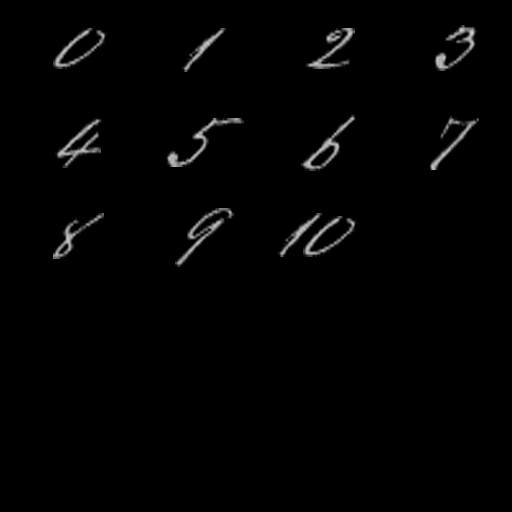 0 1 2 3
4 5 6 7
8 9 10